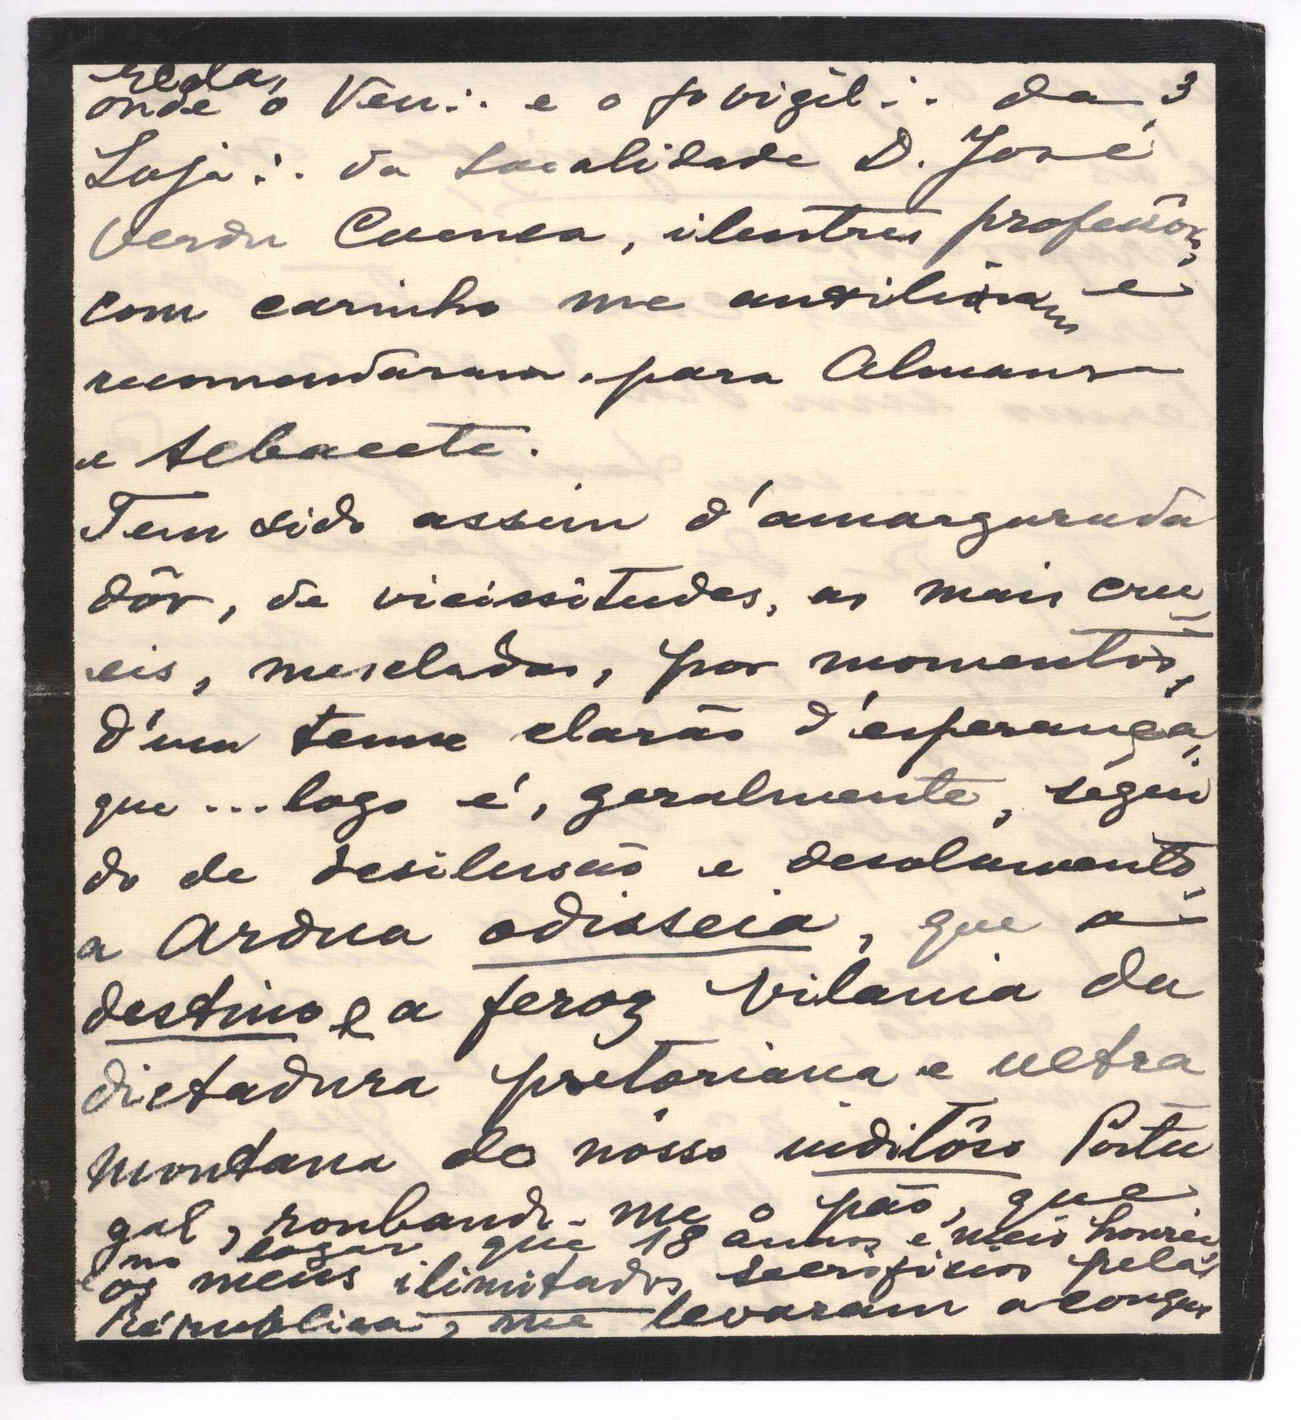 Elda,
onde o Ven∴ e o 1º vigil∴ da 3
Loja∴ da localidade D. José
Verdu Cuenca, ilustres professôres,
com carinho me auxiliaram e
recomendaram para Almansa
e Albacete.
Tem sido assim d'amargurada
dôr, de vicissitudes, as mais cru
eis, mescladas, por momentos,
d'um tenue clarão d'esperança,
que ... logo é, geralmente, ségui
do de desilusão e desolamento,
a Ardua odisseia, que o
destino e a feroz vilania da
dictadura pretoriana e ultra
montana do nósso inditôso Portu
gal, roubando-me o pão, que
no logar que 18 annos e meio honrei,
e os meus ilimitados sacrificios pela
Républica, me levaram a conqus